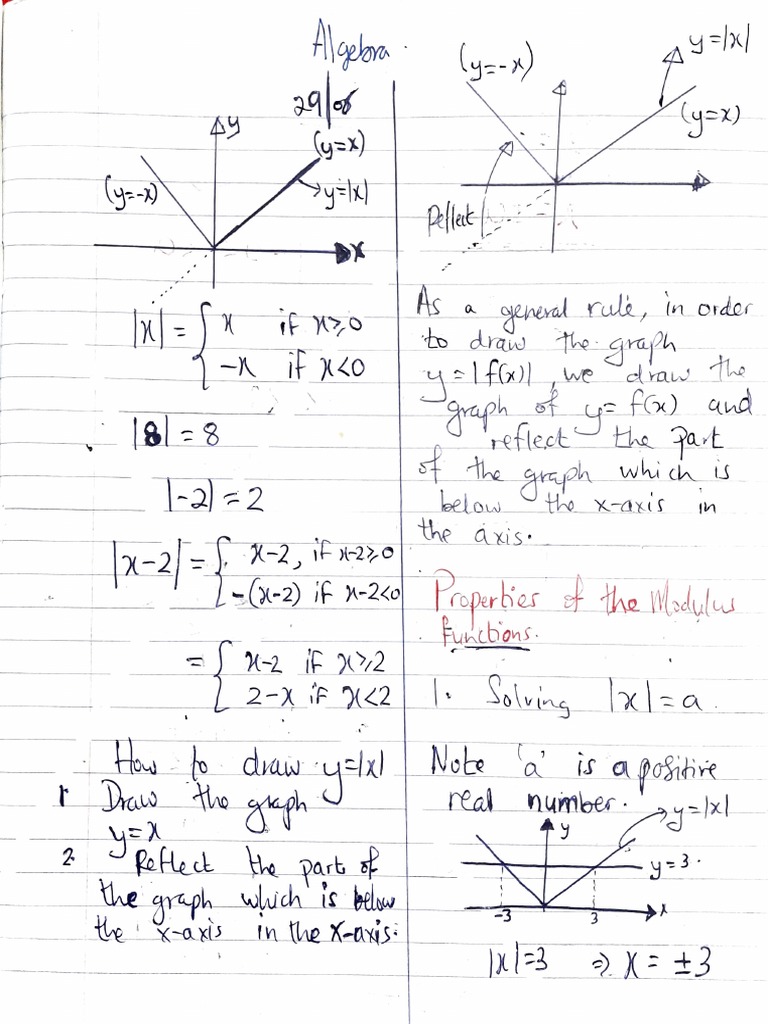 Algebra.
29/08
y
(y=x)
(y=-x)
y=|x|
x
|x| = { x if x≥0
-x if x<0
|8| = 8
|-2| = 2
|x-2| = { x-2, if x-2≥0
-(x-2) if x-2<0
= { x-2 if x≥2
2-x if x<2
How to draw y=|x|
1 Draw the graph
y=x
2. Reflect the part of
the graph which is below
the x-axis in the x-axis.
(y=-x)
y=|x|
(y=x)
Reflect
As a general rule, in order
to draw the graph
y=|f(x)|, we draw the
graph of y= f(x) and
reflect the part
of the graph which is
below the x-axis in
the axis.
Properties of the Modulus
Functions.
1. Solving |x|=a.
Note 'a' is a positive
real number.
y=|x|
y
y=3.
-3 3 x
|x|=3 ⇒ x = ±3